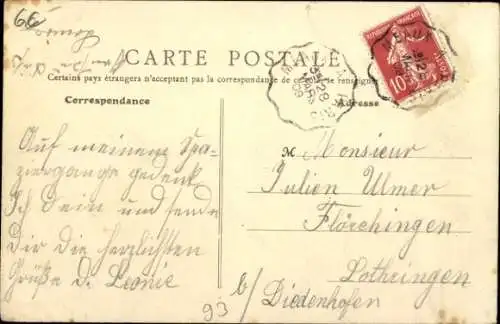 66
CARTE POSTALE
Certains pays étrangers n'acceptant pas la correspondance de ce
se renseigner
Correspondance
Adresse
RÉPUBLIQUE FRANÇAISE
10
POSTES
MEAUX
28
MARS
09
Auf meinem Spa-
ziergange gedenk
Ich Dein und sende
Dir die herzlichsten
Grüße D. Leonie
M Monsieur
Julien Ulmer
Flörchingen
Lothringen
b/ Diedenhofen
93